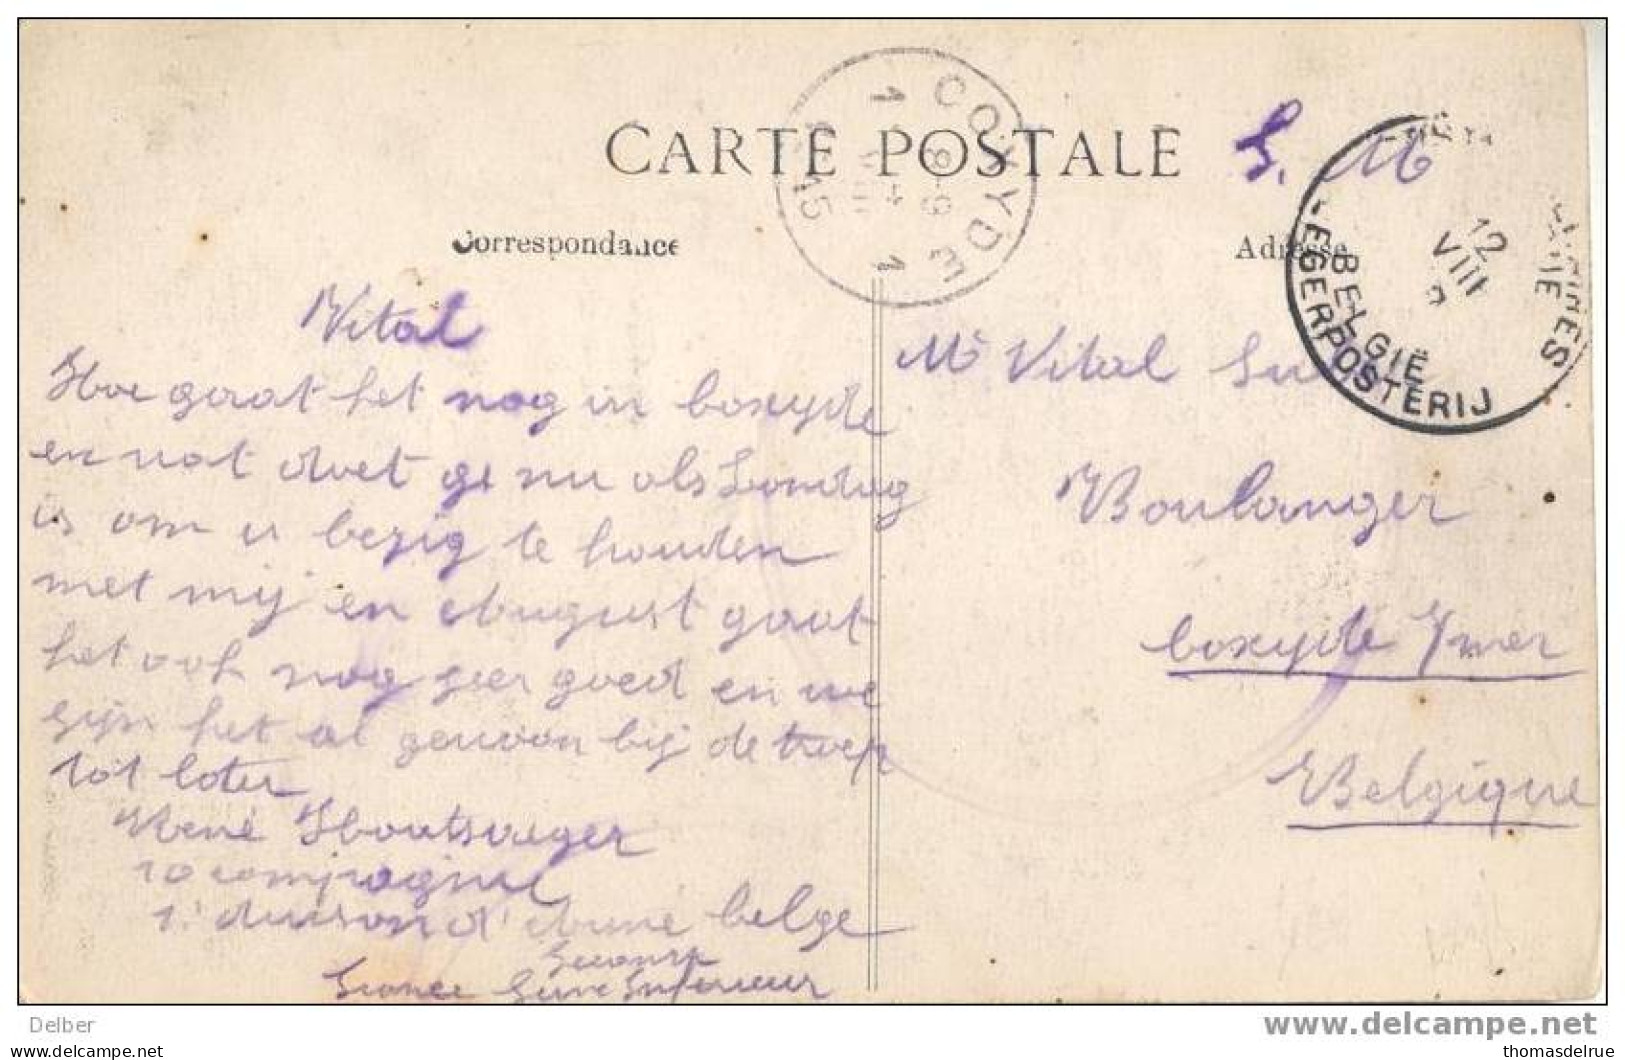 CARTE POSTALE
S. M
COXYDE
8-9
VIII
15
12
VIII
BELGIË
LEGERPOSTERIJ
Correspondance
Adresse
Vital
Hoe gaat het nog in Coxyde
en wat doet ge nu als Zondag
is om u bezig te houden
met mij en August gaat
het ook nog zeer goed en we
zijn het al gewoon bij de troep
tot later
René Houtsaeger
10 compagnie
1e division d'Armé belge
France Seine Inferieur
Mr Vital
Boulanger
Coxyde
Belgique
Delber
www.delcampe.net
All copyrights reserved
thomasdelrue